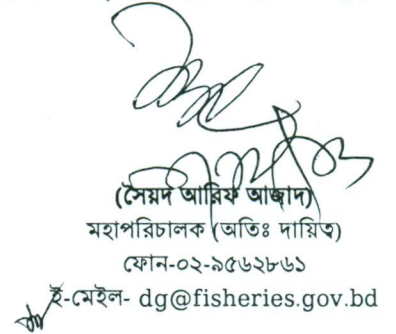 (সৈয়দ আরিফ আজাদ)
মহাপরিচালক (অতিঃ দায়িত্ব)
ফোন-০২-৯৫৬২৮৬১
ই-মেইল- dg@fisheries.gov.bd